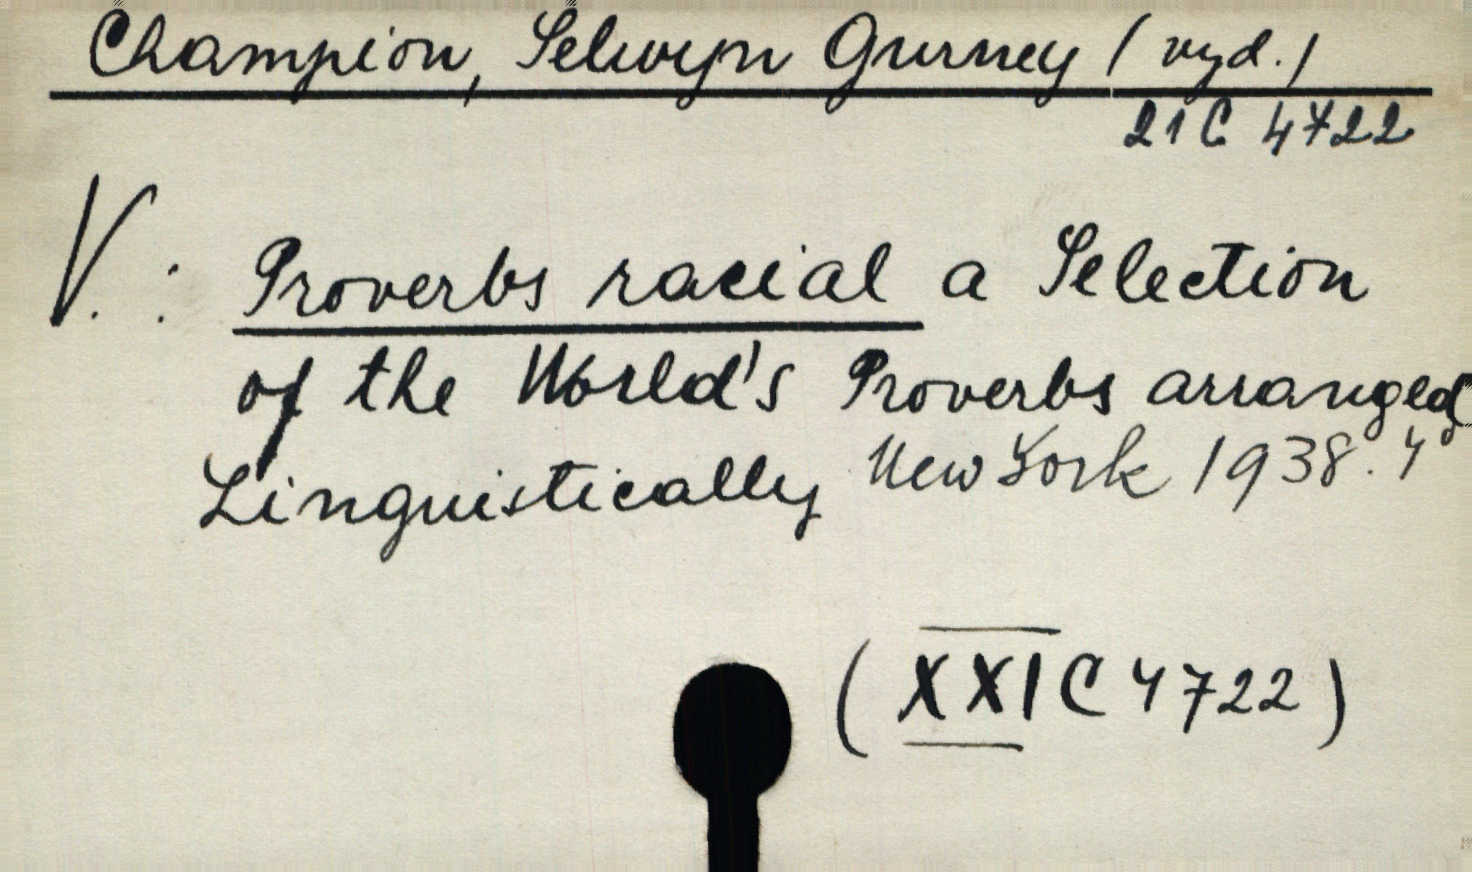 Champion, Selwyn Gurney (vyd.)
21 C 4722
V.: Proverbs racial a Selection
of the World's Proverbs arranged
Linguistically New York 1938. 4°
(XXI C 4722)